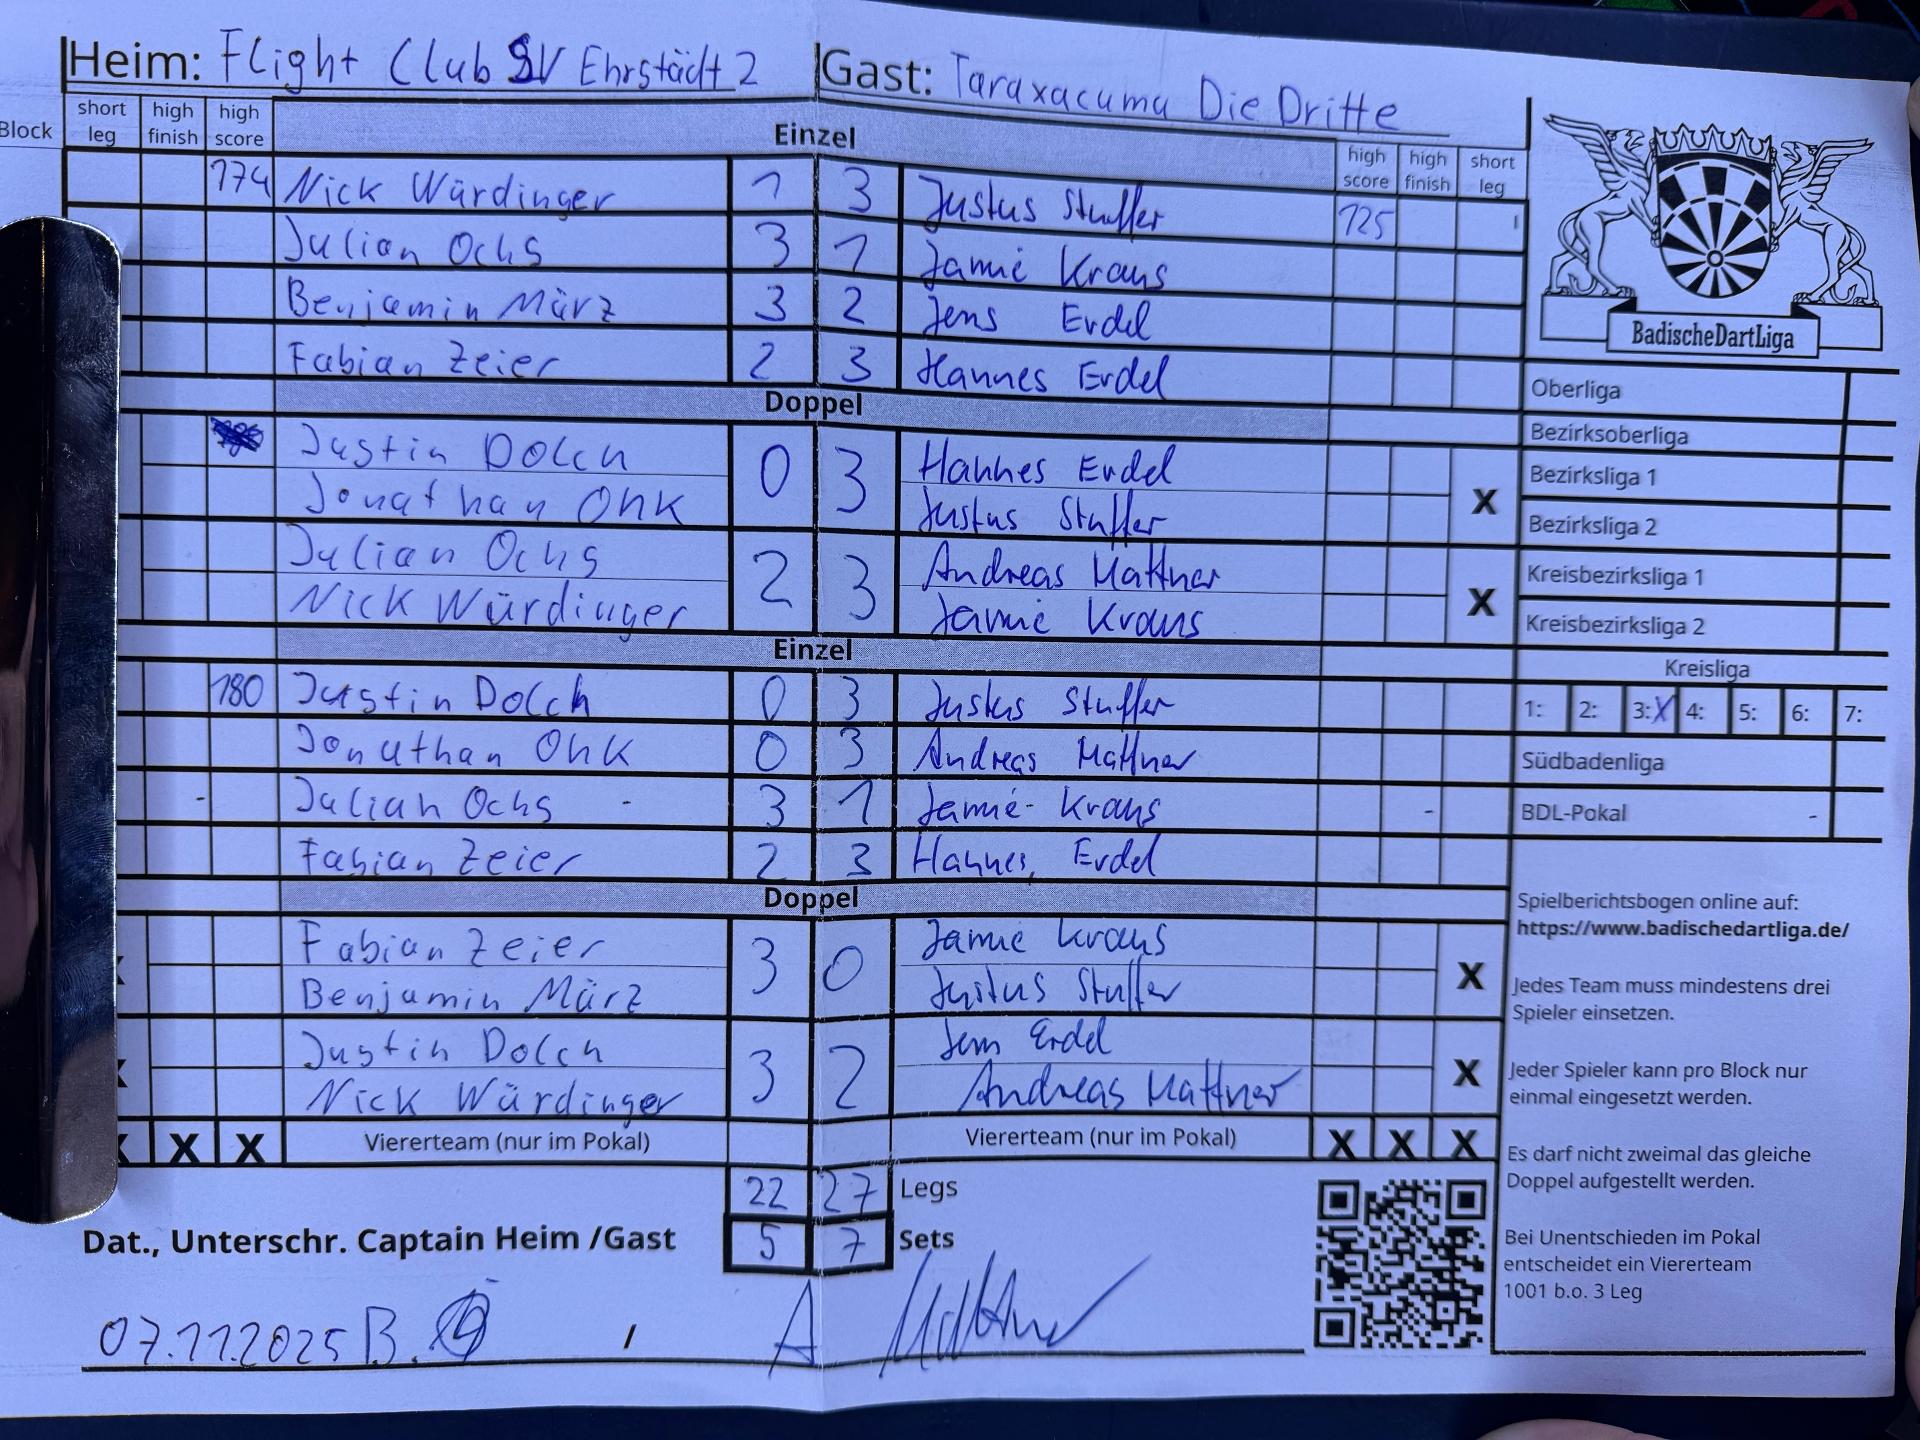 Heim: Flight Club SV Ehrstädt 2 Gast: Taraxacuma Die Dritte
Block short leg high finish high score Einzel high score high finish short leg
174 Nick Würdinger 1 3 Justus Stuffer 125
Julian Ochs 3 1 Jamie Kraus
Benjamin März 3 2 Jens Erdel
Fabian Zeier 2 3 Hannes Erdel
Doppel
Justin Dolch 0 3 Hannes Erdel
Jonathan Ohk Justus Stuffer X
Julian Ochs 2 3 Andreas Mattner
Nick Würdinger Jamie Kraus X
Einzel
180 Justin Dolch 0 3 Justus Stuffer
Jonathan Ohk 0 3 Andreas Mattner
- Julian Ochs - 3 1 Jamie Kraus -
Fabian Zeier 2 3 Hannes Erdel
Doppel
Fabian Zeier 3 0 Jamie Kraus
Benjamin März Justus Stuffer X
Justin Dolch 3 2 Jens Erdel
Nick Würdinger Andreas Mattner X
X X X Viererteam (nur im Pokal) Viererteam (nur im Pokal) X X X
22 27 Legs
5 7 Sets
Dat., Unterschr. Captain Heim /Gast
07.11.2025 B. / A Mattner
BadischeDartLiga
Oberliga
Bezirksoberliga
Bezirksliga 1
Bezirksliga 2
Kreisbezirksliga 1
Kreisbezirksliga 2
Kreisliga
1: 2: 3: X 4: 5: 6: 7:
Südbadenliga
BDL-Pokal -
Spielberichtsbogen online auf:
https://www.badischedartliga.de/
Jedes Team muss mindestens drei
Spieler einsetzen.
Jeder Spieler kann pro Block nur
einmal eingesetzt werden.
Es darf nicht zweimal das gleiche
Doppel aufgestellt werden.
Bei Unentschieden im Pokal
entscheidet ein Viererteam
1001 b.o. 3 Leg